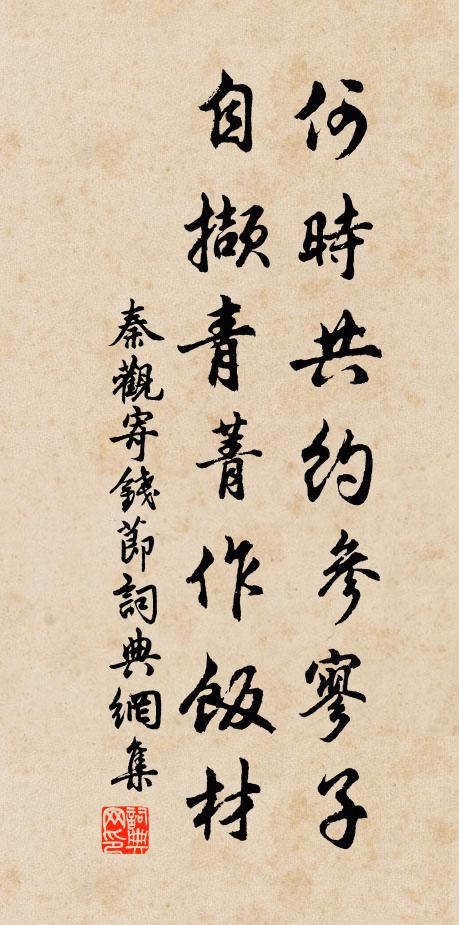 何時共約參寥子
自擷青菁作飯材
秦觀寄錢節詞典網集
詞典網印